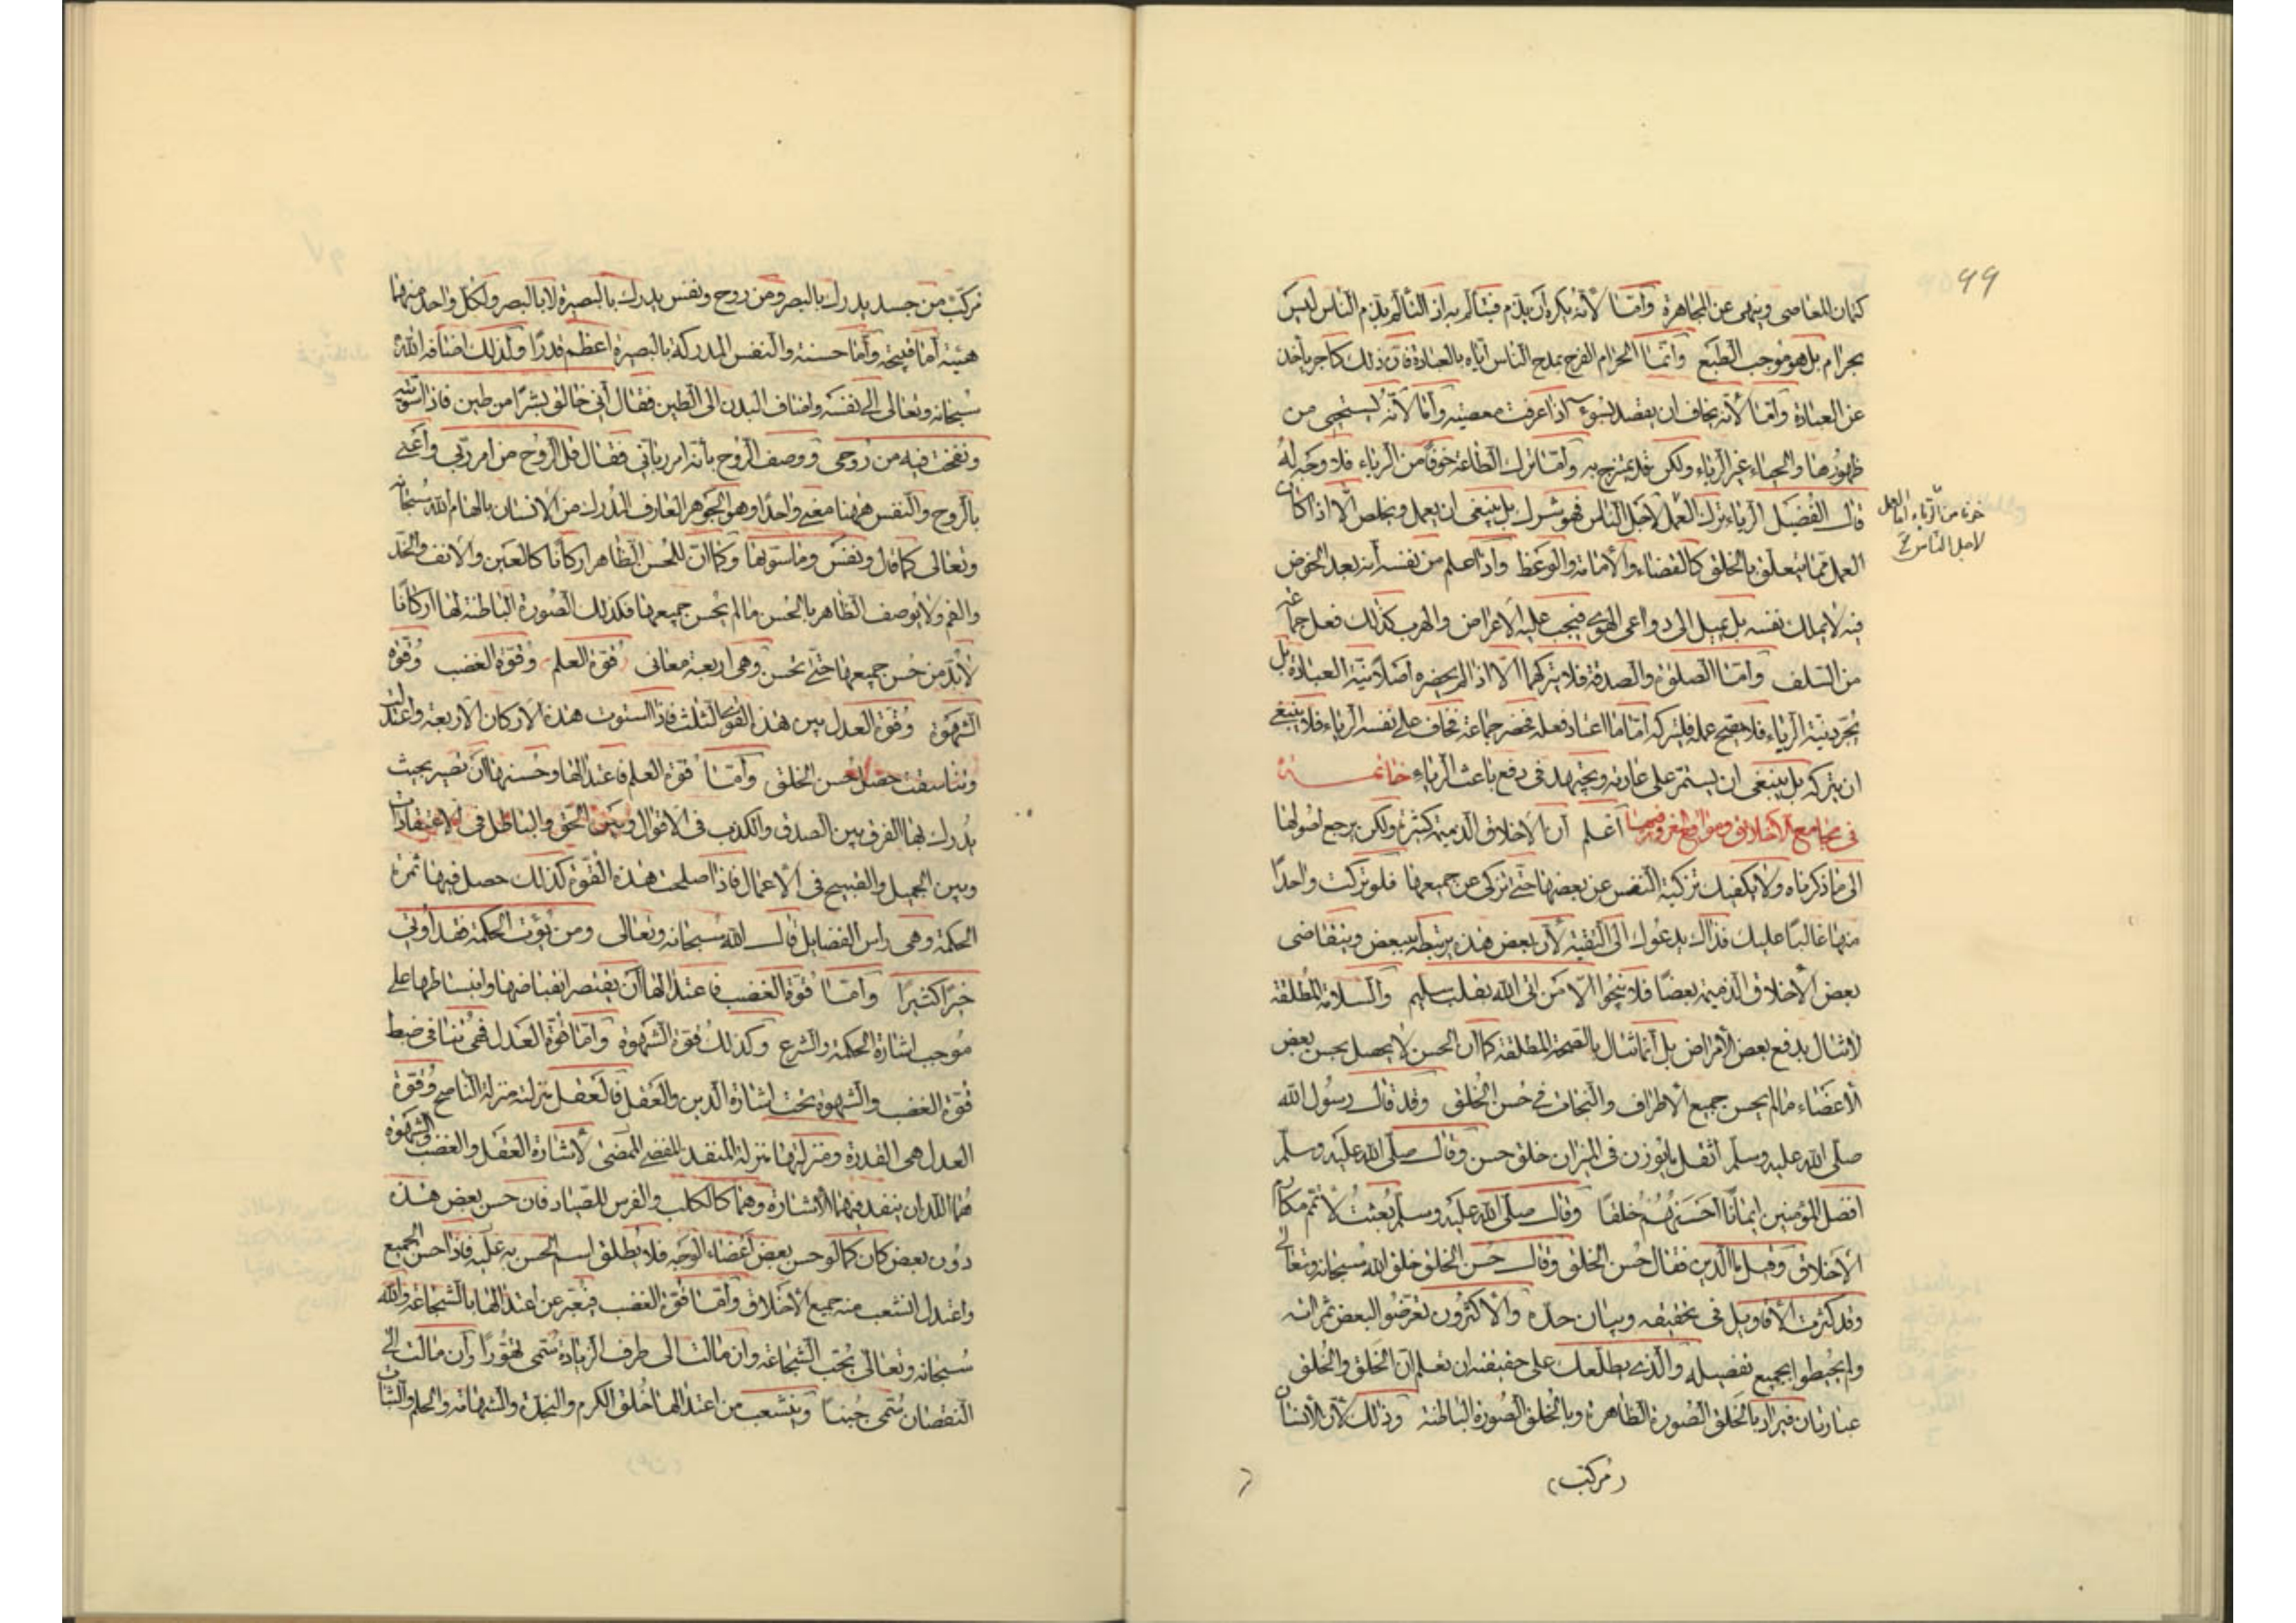 ٩٩
كتمان المعاصى وينهى عن المجاهرة وامّا لأنّه يكره أن يذم فيتألم به اذ التألم بذم الناس ليس
بحرام بل هو موجب الطبع وانّما الحرام الفرح بمدح الناس اياه بالعبادة فان ذلك كاجر يأخذ
عن العبادة وامّا لأنّه يخاف ان يقصد بسوء اذا عرفت معصيته وامّا لأنّه يستحيى من
ظهورها والحياء غير الرياء ولكن قد يمتزج به وامّا ترك الطاعة خوفًا من الرياء فلا وجه له
قال الفضيل الرياء ترك العمل لاجل الناس فهو شرك بل ينبغى ان يعمل ويخلص الّا اذا كان
خوفا من الرياء امّا العمل
لاجل الناس صح
العمل ممّا يتعلّق بالخلق كالقضاء والامامة والوعظ واذا علم من نفسه أنه بعد الخوض
فيه لا يملك نفسه بل يميل الى دواعى الهوى فيجب عليه الاعراض والهرب كذلك فعل جماعة
من السلف وامّا الصلوة والصدقة فلا يتركهما الّا اذا لم يحضره اصلا نيّة العبادة بل
تجرّد نيّة الرياء فلا يصح عمله فليتركه امّا ما اعتاد فعله فحضر جماعة فخاف على نفسه الرياء فلا ينبغى
ان يتركه بل ينبغى ان يستمرّ على عادته ويجتهد فى دفع باعث الرياء خاتمـــة
فى مجامع الاخلاق ومواقع الغرور فيها اعلم أن الاخلاق الذميمة كثيرة ولكن يرجع اصولها
الى ما ذكرناه ولا يكفيك تزكية النفس عن بعضها حتّى تزكى عن جميعها فلو تركت واحدًا
منها غالبًا عليك فذاك يدعوك الى البقيّة لأن بعض هذه يرتبط ببعض ويتقاضى
بعض الأخلاق الذميمة بعضًا فلا ينجوا الّا من اتى الله بقلب سليم والسلامة المطلقة
لا تنال بدفع بعض الأمراض بل انّما تنال بالصحة المطلقة كما أن الحسن لا يحصل بحسن بعض
الأعضاء ما لم يحسن جميع الاطراف والنجاة فى حسن الخلق وقد قال رسول الله
صلّى الله عليه وسلم أثقل ما يوزن فى الميزان خلق حسن وقال صلّى الله عليه وسلم
افضل المؤمنين ايمانًا احسنهم خلقًا وقال صلّى الله عليه وسلم بعثت لأتمم مكارم
الأخلاق وقيل ما الدين فقال حُسن الخلق وقال حُسن الخلق خلق الله سبحانه وتعالى
وقد كثرت الأقاويل فى تحقيقه وبيان حدّه والأكثرون تعرّضوا لبعض ثمراته
ولم يحيطوا بجميع تفصيله والّذى يطلعك على حقيقته ان تعلم انّ الخَلق والخُلق
عبارتان فيراد بالخَلق الصورة الظاهرة وبالخُلق الصورة الباطنة وذلك لأن الأنسان
(مركّب)
تركّب من جسد يدرك بالبصر ومن روح ونفس يدرك بالبصيرة لا بالبصر ولكل واحد منهما
هيئة أما قبيحة وأما حسنة والنفس المدركة بالبصيرة اعظم قدرًا ولذلك اضافه الله
سبحانه وتعالى الى نفسه واضاف البدن الى الطين فقال انى خالق بشرًا من طين فاذا سويته
ونفخت فيه من روحى ووصف الروح بأنه امر ربانى فقال قل الروح من امر ربى وأعنى
بالروح والنفس ههنا معنى واحدًا وهو الجوهر العارف المدرك من الانسان بالهام الله سبحانه
وتعالى كما قال ونفس وما سوّيها وكما ان للحسن الظاهر اركانًا كالعين والأنف والخد
والفم ولا يوصف الظاهر بالحسن ما لم يحسن جميعها فكذلك الصورة الباطنة لها اركانًا
لا بدّ من حسن جميعها حتّى تحسن وهى اربعة معانى قوّة العلم وقوّة الغضب وقوّة
الشهوة وقوّة العدل بين هذه القوى الثلث فاذا استوت هذه الأركان الأربعة واعتدلت
وتناسقت حصل حُسن الخلق وأمّا قوّة العلم فاعتدالها وحسنها أن تصير بحيث
يدرك بها الفرق بين الصدق والكذب فى الأقوال وبين الحق والباطل فى الاعتقادات
وبين الجميل والقبيح فى الأعمال فاذا اصلحت هذه القوّة كذلك حصل فيها ثمرة
الحكمة وهى رأس الفضايل قال الله سبحانه وتعالى ومن يؤت الحكمة فقد اوتى
خيرًا كثيرًا وأمّا قوّة الغضب فاعتدالها أن يقتصر انقباضها وانبساطها على
موجب اشارة الحكمة والشرع وكذلك قوّة الشهوة وأمّا قوّة العدل فهى تنافى ضبط
قوّة الغضب والشهوة تحت اشارة الدين والعقل فالعقل منزلته منزلة الناصح وقوّة
العدل هى القدرة ومنزلتها منزلة المنفذ المفضى الممضى لأشارة العقل والغضب والشهوة
هما اللذان ينفذ فيهما الأشارة وهما كالكلب والفرس للصياد فان حسن بعض هذه
دون بعض كان كما لو حسن بعض أعضاء الوجه فلا يطلق اسم الحسن به عليه فاذا حسن الجميع
واعتدل انشعب منه جميع الأخلاق وأمّا قوّة الغضب فيعبّر عن اعتدالها بالشجاعة والله
سبحانه وتعالى يحب الشجاعة وان مالت الى طرف الزيادة تسمى تهوّرًا وان مالت الى
النقصان تسمى جبنًا ويتشعب من اعتدالها خُلق الكرم والنجدة والشهامة والحلم والثبات